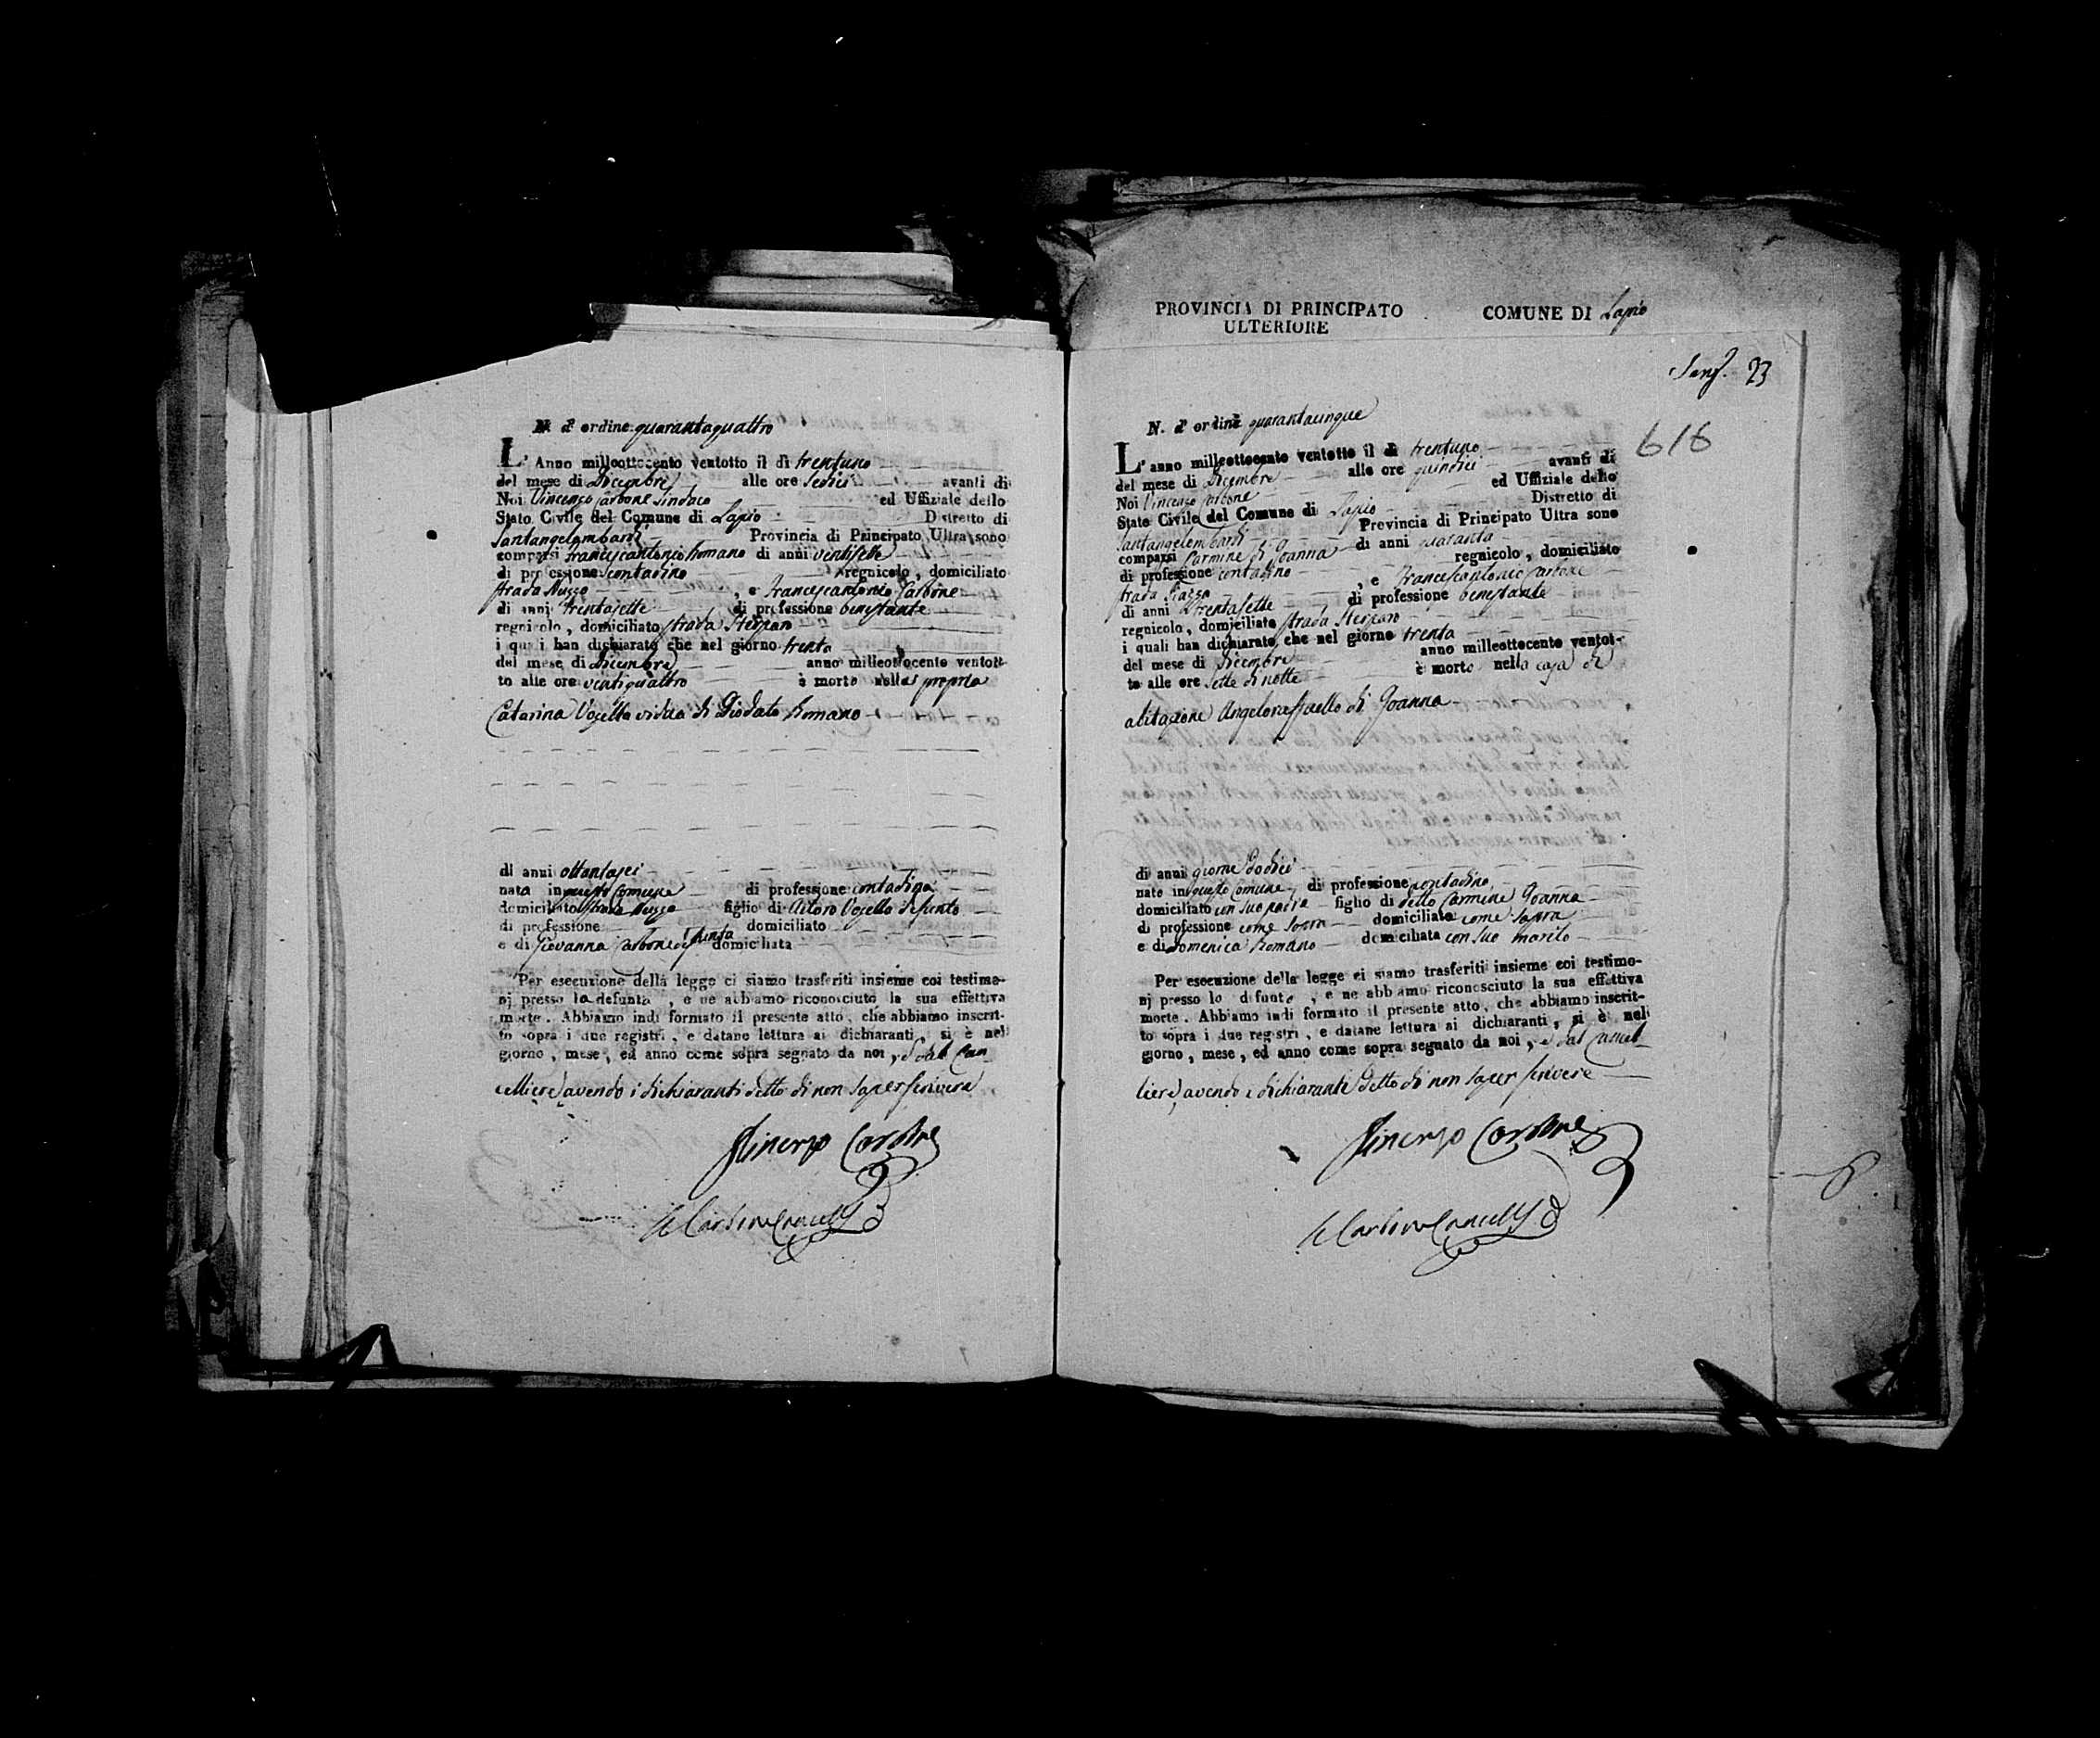 N. d'ordine quarantaquattro
L'Anno milleottocento ventotto il dì trentuno
del mese di Dicembre alle ore sedici avanti di
Noi Vincenzo Carbone Sindaco ed Uffiziale dello
Stato Civile del Comune di Lapio Distretto di
Santangelombardi Provincia di Principato Ultra sono
comparsi Francescantonio Romano di anni ventisette
di professione contadino regnicolo, domiciliato
strada , e Francescantonio Carbone
di anni trentasette di professione benestante
regnicolo, domiciliato strada
i quali han dichiarato che nel giorno trenta
del mese di Dicembre anno milleottocento ventot-
to alle ore ventiquattro è morto nella propria
Catarina Vosella vidua di Diodato Romano
di anni ottantasei
nata in questo Comune di professione contadina
domiciliato strada figlio di Vosello defunto
di professione domiciliato
e di Giovanna Carbone defunta domiciliata
Per esecuzione della legge ci siamo trasferiti insieme coi testimo-
nj presso la defunta , e ne abbiamo riconosciuto la sua effettiva
morte. Abbiamo indi formato il presente atto, che abbiamo inscrit-
to sopra i due registri, e datane lettura ai dichiaranti, si è nel
giorno, mese, ed anno come sopra segnato da noi, e dal Can
celliere avendo i dichiaranti detto di non saper scrivere
Vincenzo Carbone
Carbone Cancell
PROVINCIA DI PRINCIPATO COMUNE DI Lapio
ULTERIORE
23
616
N. d'ordine quarantacinque
L'anno milleottocento ventotto il dì trentuno
del mese di Dicembre alle ore quindici avanti di
Noi Vincenzo Carbone ed Uffiziale dello
Stato Civile del Comune di Lapio Distretto di
Santangelombardi Provincia di Principato Ultra sono
comparsi Carmine di Joanna di anni quaranta
di professione contadino regnicolo, domiciliato
strada Piazza , e Francescantonio Carbone
di anni trentasette di professione benestante
regnicolo, domiciliato strada
i quali han dichiarato che nel giorno trenta
del mese di Dicembre anno milleottocento ventot-
to alle ore sette di notte è morto nella casa di
abitazione Angeloraffaello di Joanna
di anni giorne dodici
nato in questo Comune, di professione contadino
domiciliato con suo padre figlio di detto Carmine Joanna
di professione come sopra domiciliato come sopra
e di Domenica Romano domiciliata con suo marito
Per esecuzione della legge ci siamo trasferiti insieme coi testimo-
nj presso lo defunto , e ne abbiamo riconosciuto la sua effettiva
morte. Abbiamo indi formato il presente atto, che abbiamo inscrit-
to sopra i due registri, e datane lettura ai dichiaranti, si è nel
giorno, mese, ed anno come sopra segnato da noi, e dal Cancel-
liere, avendo i dichiaranti detto di non saper scrivere
Vincenzo Carbone
Carbone Cancell